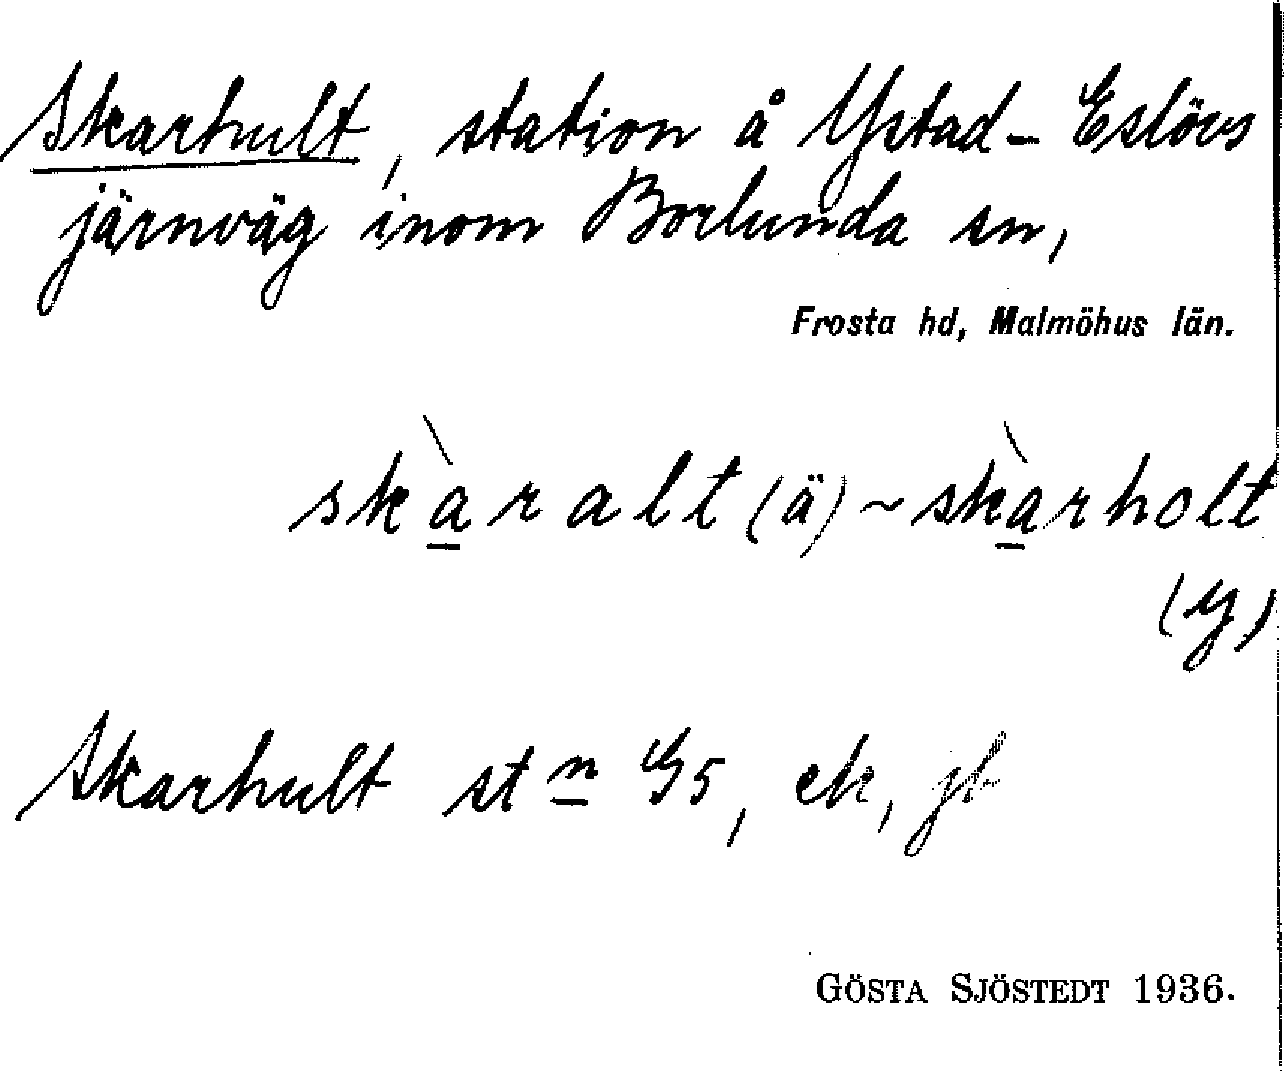 Skarhult, station å Ystad - Eslövs
järnväg inom Borlunda sn,
Frosta hd, Malmöhus län.
skàralt (ä) ~ skàrholt
(y)
Skarhult stn G5, ek, jb
GÖSTA SJÖSTEDT 1936.